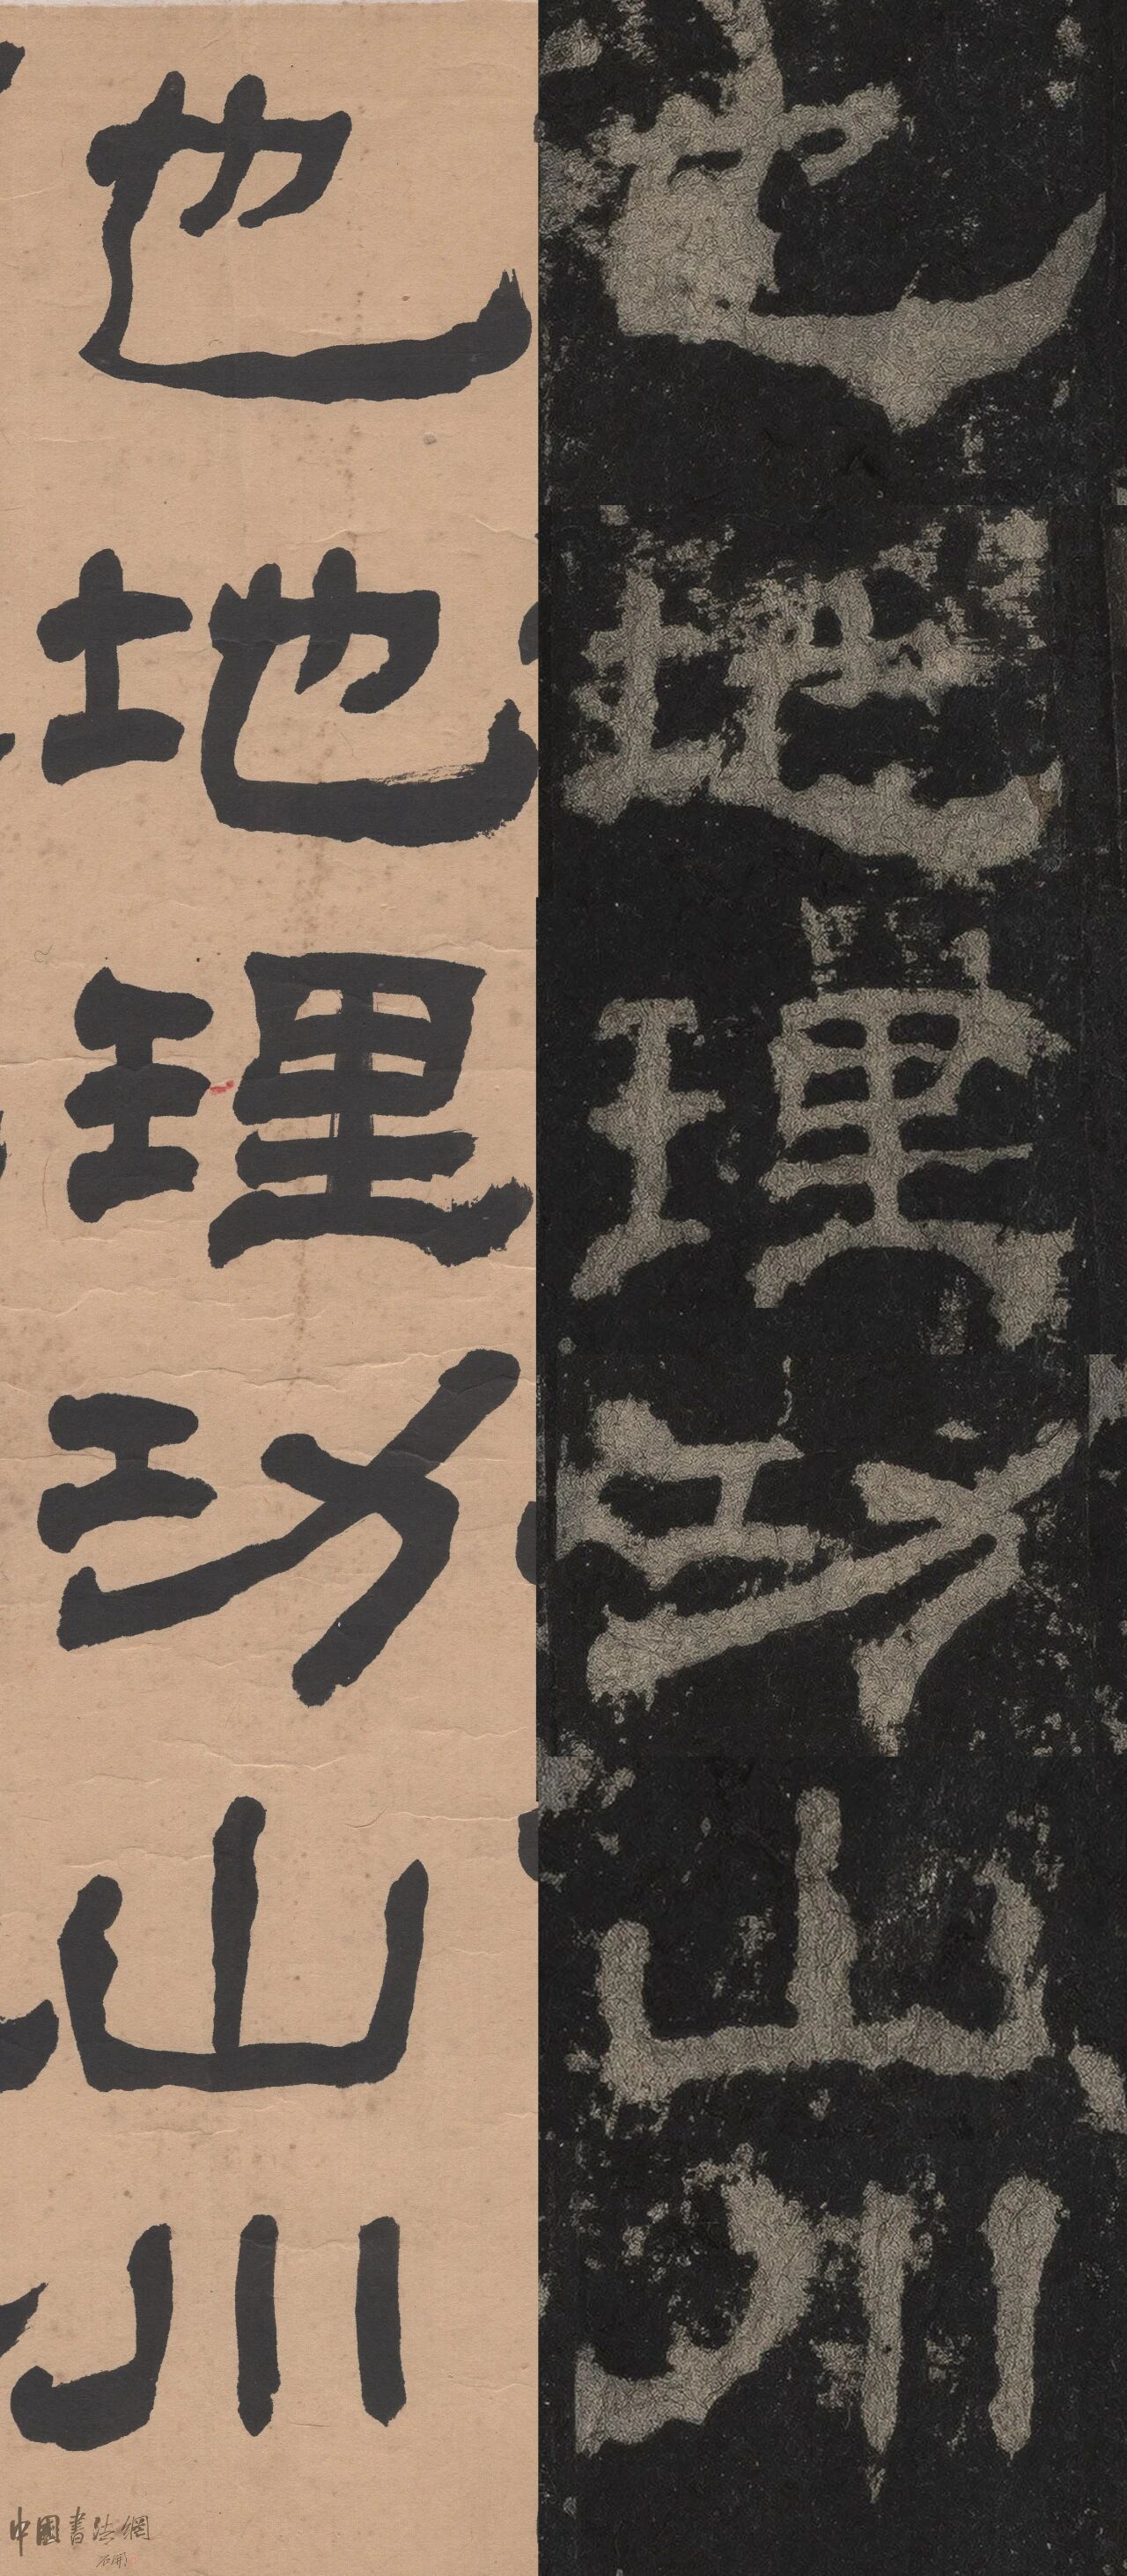 也地理功山川
也地理功山川
中國書法網